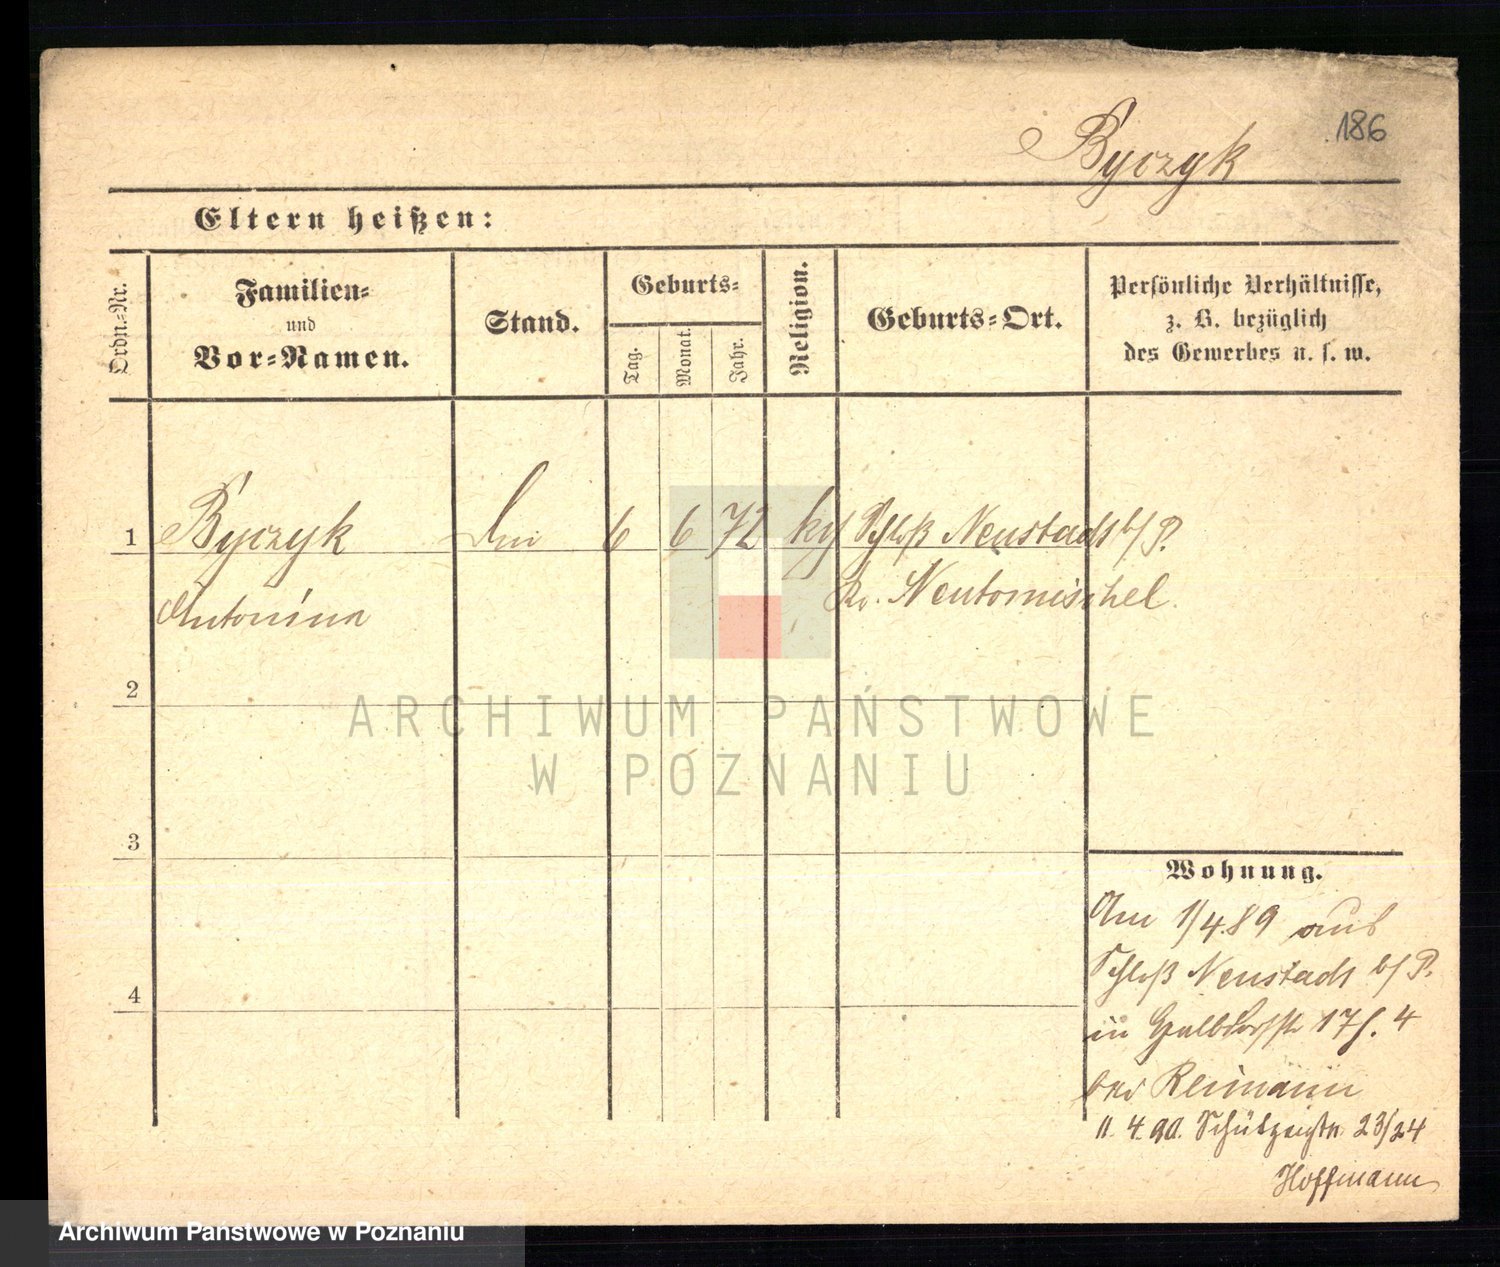 186
Byczyk
Eltern heißen:
Ordn.-Nr.
Familien-
und
Vor-Namen.
Stand.
Geburts-
Tag.
Monat.
Jahr.
Religion.
Geburts-Ort.
Persönliche Verhältnisse,
z. B. bezüglich
des Gewerbes u. s. w.
1 Byczyk 6 6 72 Schloß Neustadt b/P.
Antonina Kr. Neutomischel.
2
3
4
Wohnung.
Am 1/4.89 aus
Schloß Neustadt b/P.
in 17 4
bei Reimann
11.4.90. Schützenstr. 23/24
Hoffmann
ARCHIWUM PAŃSTWOWE
W POZNANIU
Archiwum Państwowe w Poznaniu